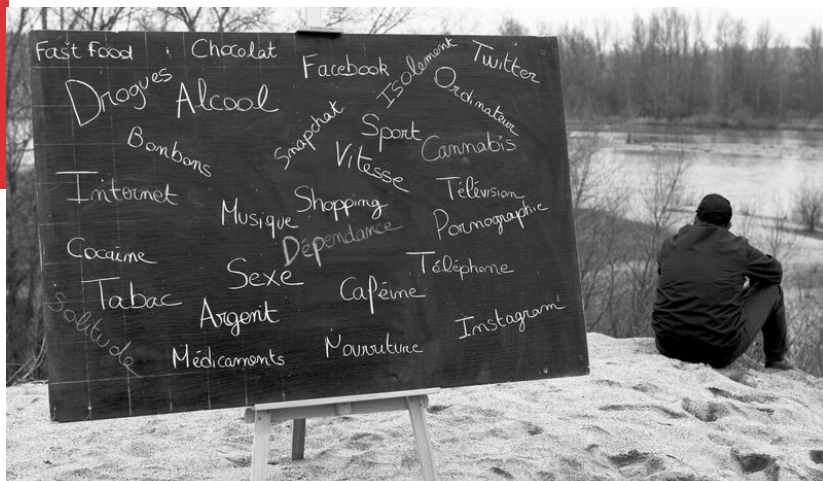 Fast Food
Chocolat
Facebook
Isolement
Twitter
Drogues
Alcool
Ordinateur
Snapchat
Sport
Bonbons
Cannabis
Vitesse
Internet
Shopping
Télévision
Musique
Pornographie
Dépendance
Cocaïne
Sexe
Téléphone
Tabac
Caféine
Solitude
Argent
Instagram
Médicaments
Nourriture